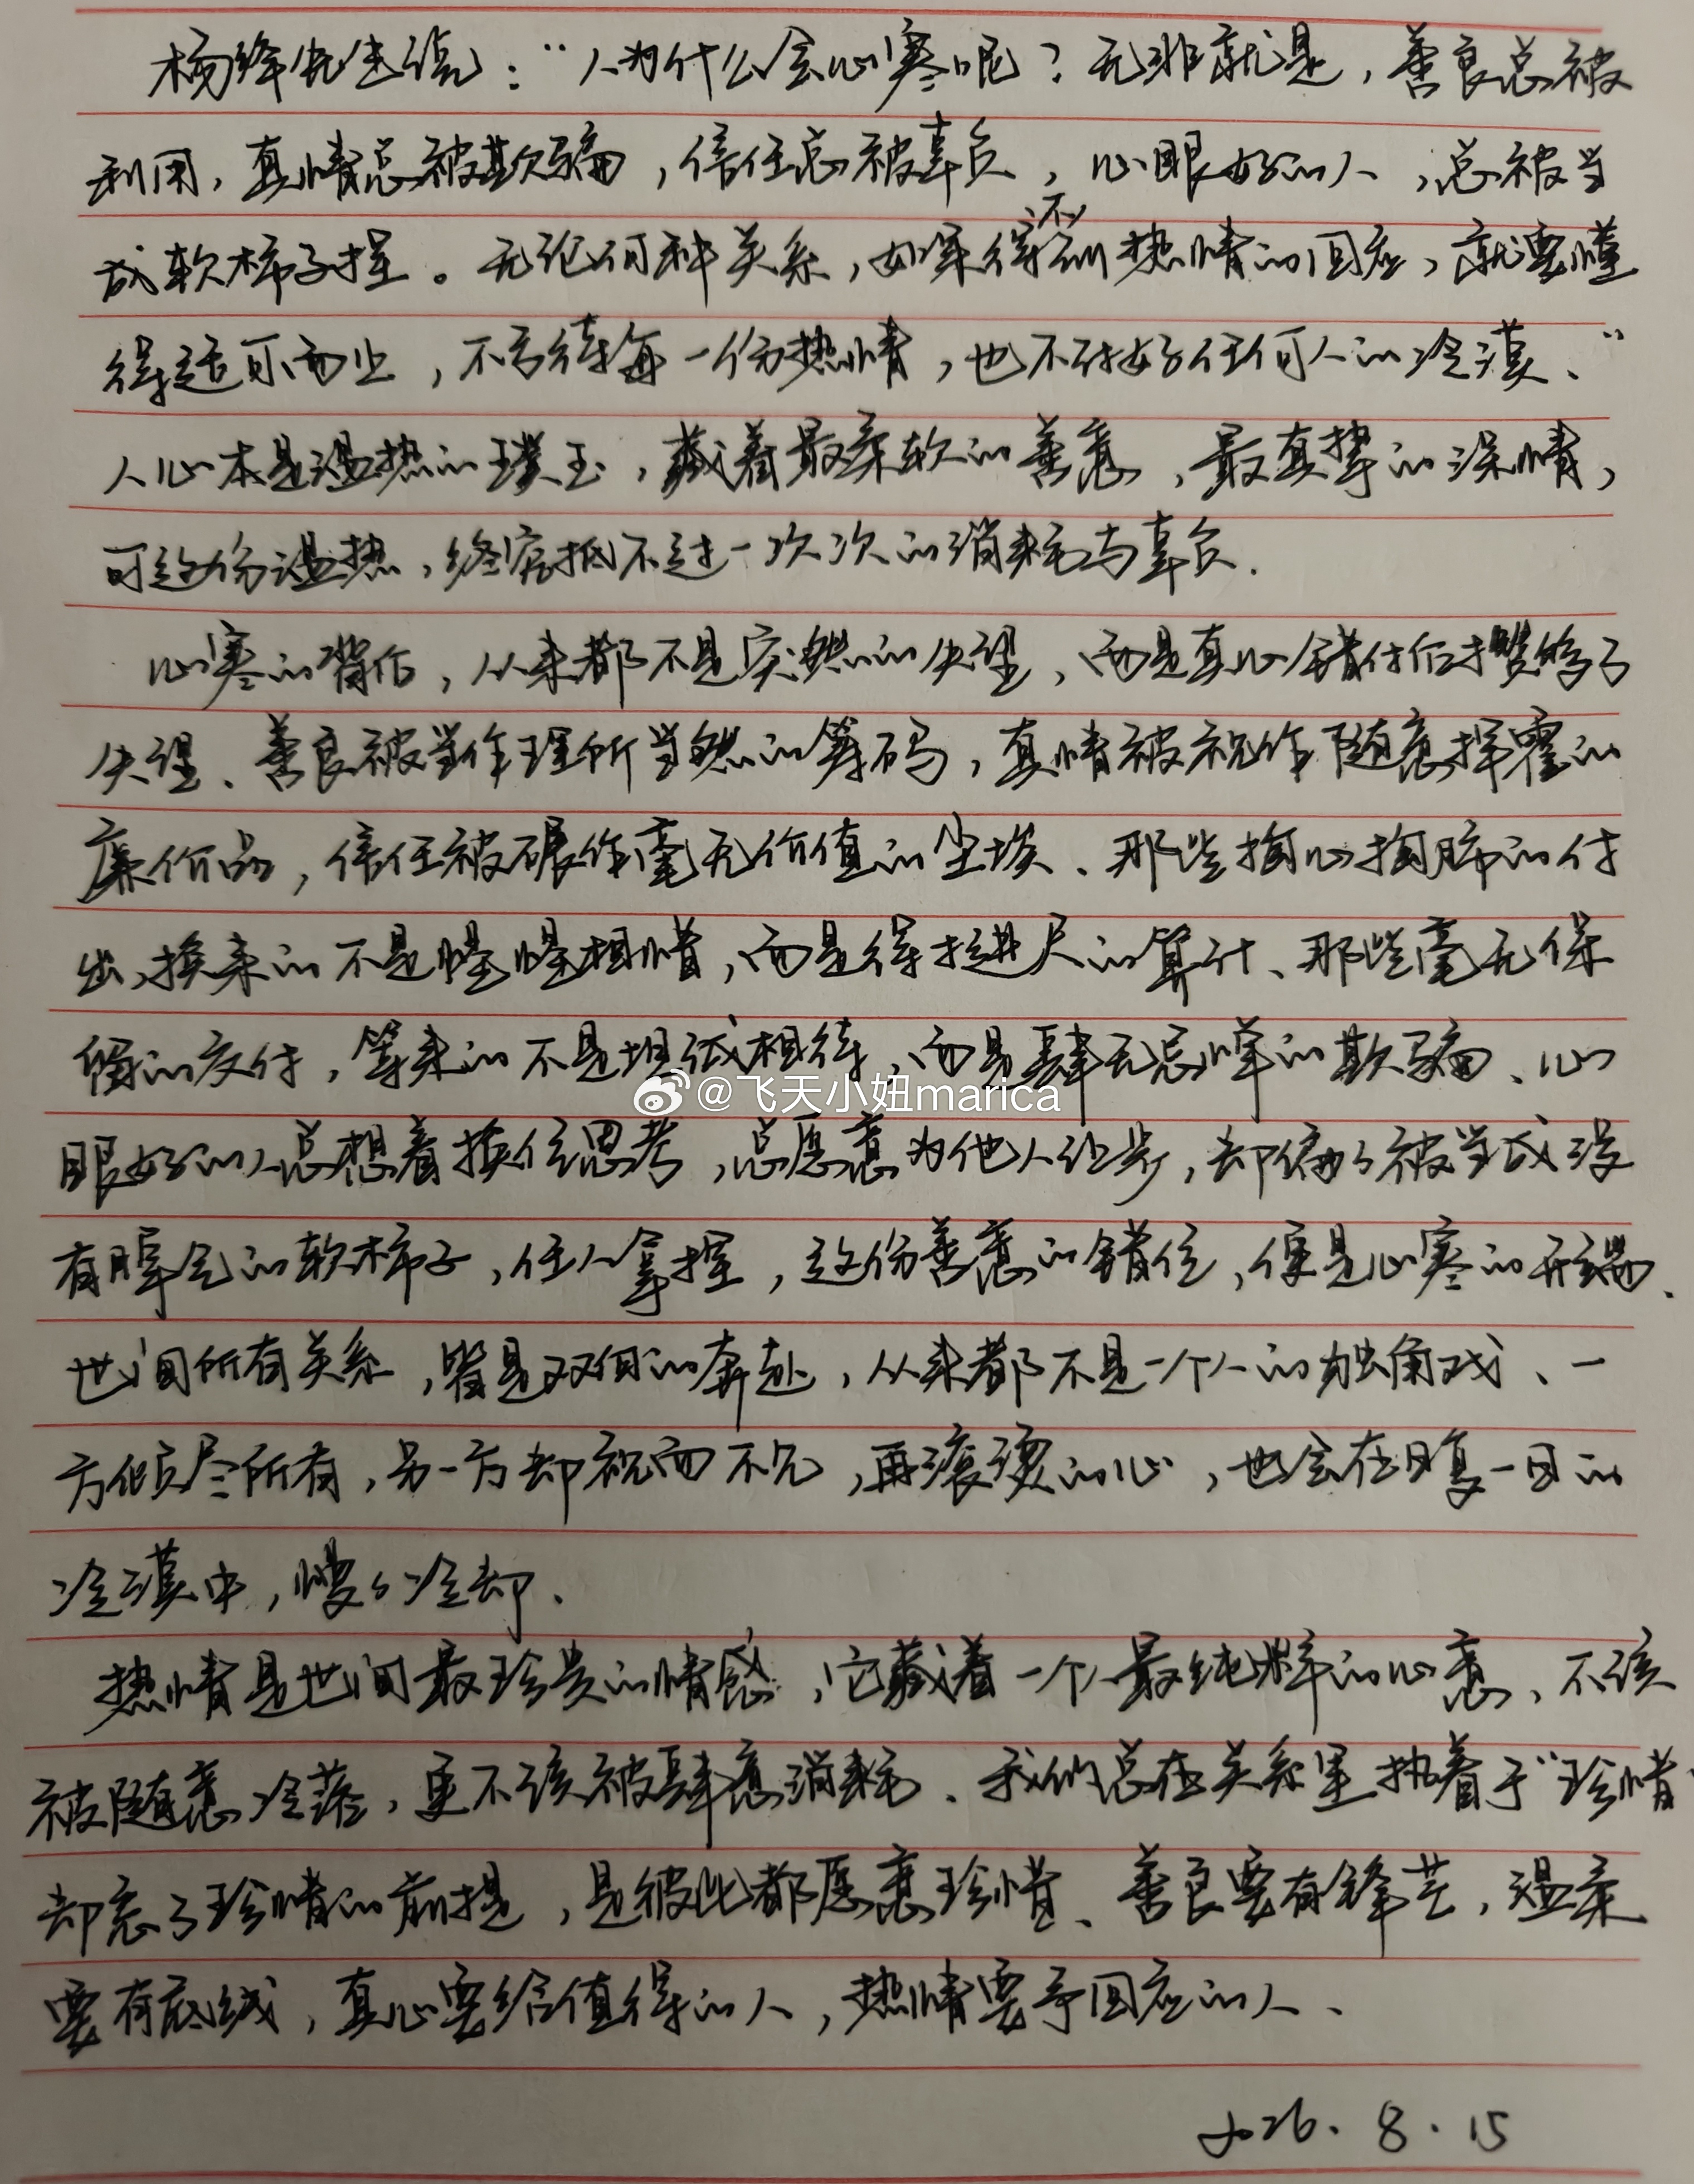 杨绛先生说：“人为什么会心寒呢？无非就是，善良总被
利用，真情总被欺骗，信任总被辜负，心眼好的人，总被当
成软柿子捏。无论何种关系，如果得不到热情的回应，就要懂
得适可而止，不亏待每一份热情，也不讨好任何人的冷漠、”
人心本是温热的璞玉，藏着最柔软的善意，最真挚的深情，
可这份温热，终究抵不过一次次的消耗与辜负.
心寒的背后，从来都不是突然的失望、而是真心错付后攒够了
失望、善良被当作理所当然的筹码，真情被视作随意挥霍的
廉价品，信任被碾作毫无价值的尘埃、那些掏心掏肺的付
出，换来的不是惺惺相惜，而是得寸进尺的算计、那些毫无保
留的交付，等来的不是坦诚相待，而是肆无忌惮的欺骗、心
眼好的人总想着换位思考，总愿意为他人让步，却偏偏被当成没
有脾气的软柿子，任人拿捏，这份善意的错位，便是心寒的开端、
世间所有关系，皆是双向的奔赴，从来都不是一个人的独角戏、一
方倾尽所有，另一方却视而不见，再滚烫的心，也会在日复一日的
冷漠中，慢慢冷却、
热情是世间最珍贵的情感，它藏着一个人最纯粹的心意、不该
被随意冷落，更不该被肆意消耗、我们总在关系里执着于“珍惜”
却忘了珍惜的前提，是彼此都愿意珍惜、善良要有锋芒，温柔
要有底线，真心要给值得的人，热情要予回应的人、
2026.8.15
@飞天小妞marica